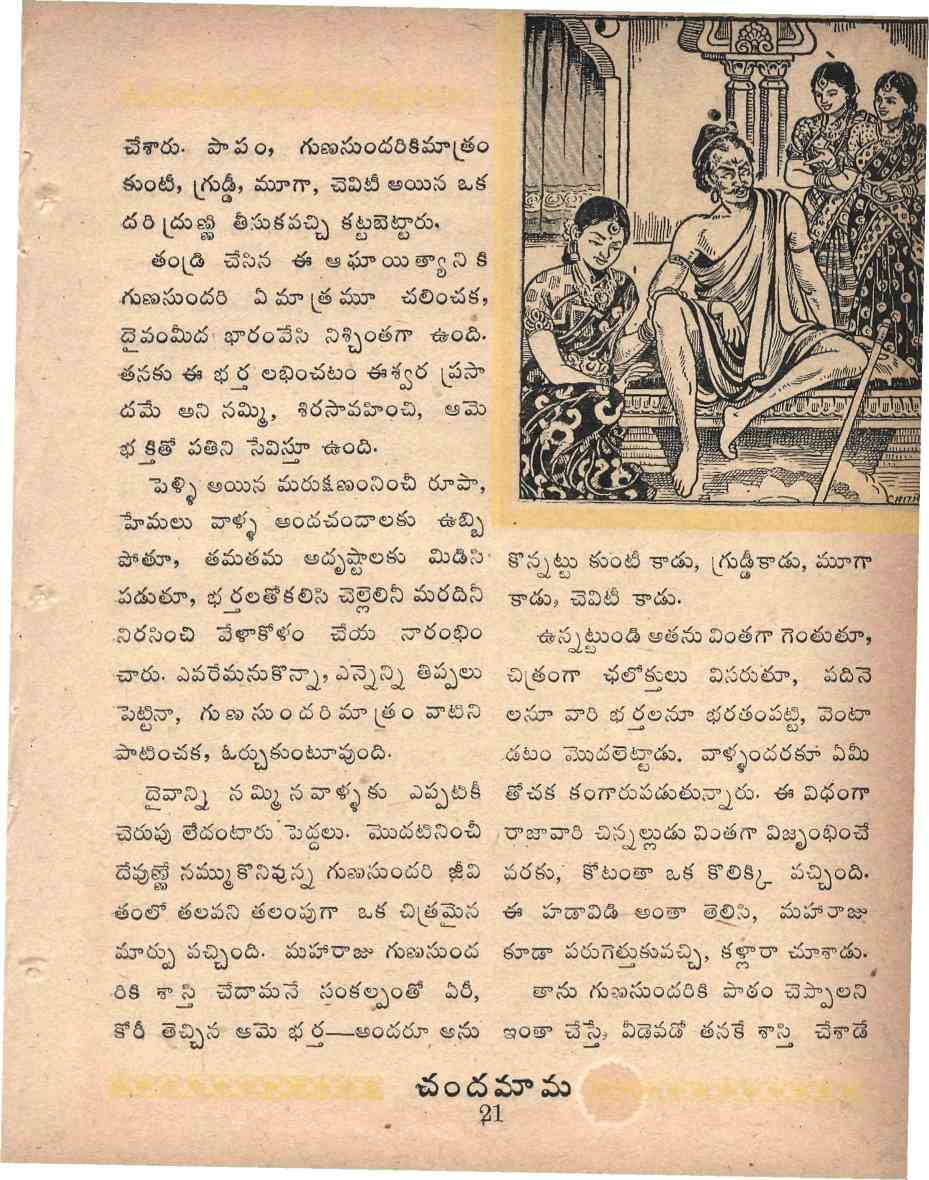 చేశారు. పాపం, గుణసుందరికిమాత్రం
కుంటీ, గ్రుడ్డీ, మూగా, చెవిటీ అయిన ఒక
దరిద్రుణ్ణి తీసుకవచ్చి కట్టబెట్టారు.
తండ్రి చేసిన ఈ ఆఘాయిత్యానికి
గుణసుందరి ఏమాత్రమూ చలించక,
దైవంమీద భారంవేసి నిశ్చింతగా ఉంది.
తనకు ఈ భర్త లభించటం ఈశ్వర ప్రసా
దమే అని నమ్మి, శిరసావహించి, ఆమె
భక్తితో పతిని సేవిస్తూ ఉంది.
పెళ్ళి అయిన మరుక్షణంనించీ రూపా,
హేమలు వాళ్ళ అందచందాలకు ఉబ్బి
పోతూ, తమతమ అదృష్టాలకు మిడిసి
పడుతూ, భర్తలతోకలిసి చెల్లెలినీ మరదినీ
నిరసించి వేళాకోళం చేయ నారంభిం
చారు. ఎవరేమనుకొన్నా, ఎన్నెన్ని తిప్పలు
పెట్టినా, గుణసుందరిమాత్రం వాటిని
పాటించక, ఓర్చుకుంటూవుంది.
దైవాన్ని నమ్మినవాళ్ళకు ఎప్పటికీ
చెరుపు లేదంటారు పెద్దలు. మొదటినించీ
దేవుణ్ణే నమ్ముకొనివున్న గుణసుందరి జీవి
తంలో తలవని తలంపుగా ఒక చిత్రమైన
మార్పు వచ్చింది. మహారాజు గుణసుంద
రికి శాస్తి చేదామనే సంకల్పంతో ఏరీ,
కోరీ తెచ్చిన ఆమె భర్త—అందరూ అను
కొన్నట్టు కుంటీ కాడు, గ్రుడ్డీకాడు, మూగా
కాడు, చెవిటీ కాడు.
ఉన్నట్టుండి అతను వింతగా గెంతుతూ,
చిత్రంగా ఛలోక్తులు విసరుతూ, పదినె
లనూ వారి భర్తలనూ భరతంపట్టి, వెంటా
డటం మొదలెట్టాడు. వాళ్ళందరకూ ఏమీ
తోచక కంగారుపడుతున్నారు. ఈ విధంగా
రాజావారి చిన్నల్లుడు వింతగా విజృంభించే
వరకు, కోటంతా ఒక కొలిక్కి వచ్చింది.
ఈ హడావిడి అంతా తెలిసి, మహారాజు
కూడా పరుగెత్తుకువచ్చి, కళ్లారా చూశాడు.
తాను గుణసుందరికి పాఠం చెప్పాలని
ఇంతా చేస్తే, వీడెవడో తనకే శాస్తి చేశాడే
చందమామ
21